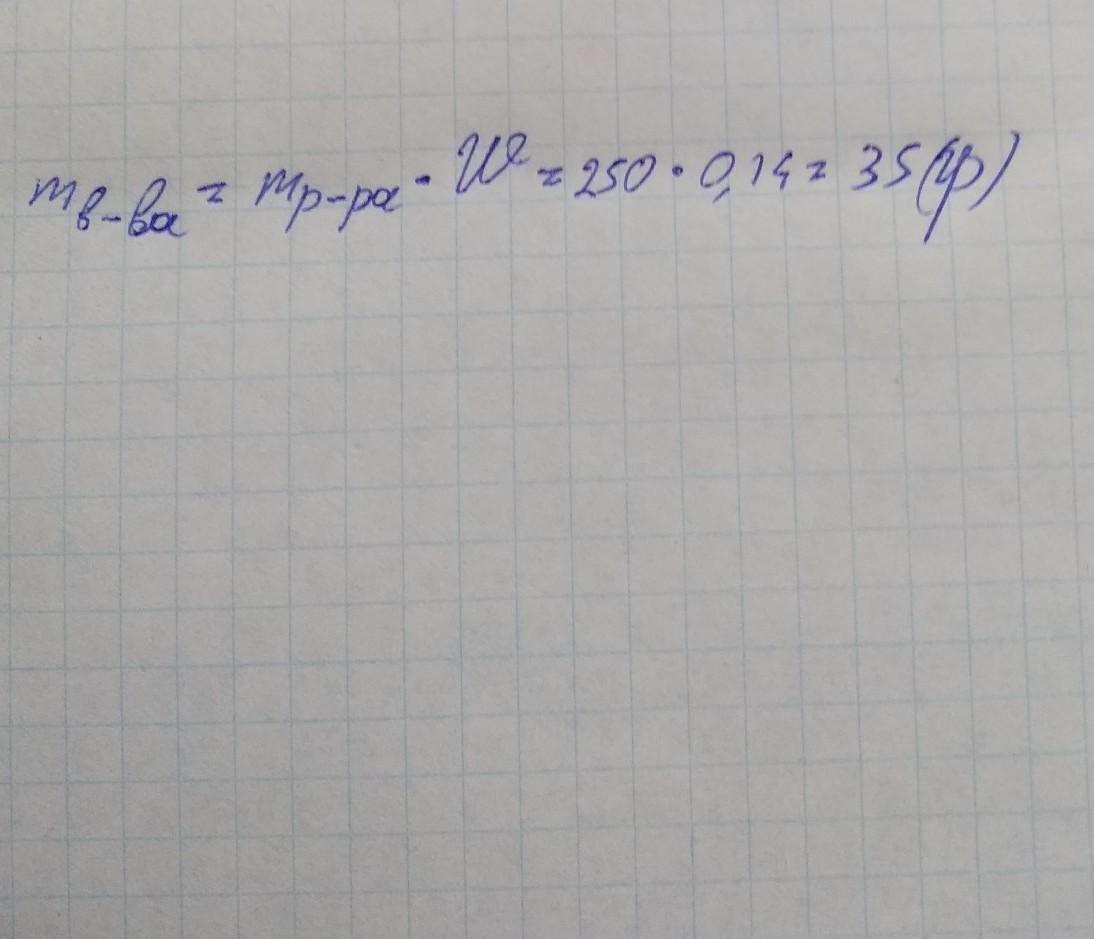 m в-ва = m р-ра · W = 250 · 0,14 = 35 (гр)